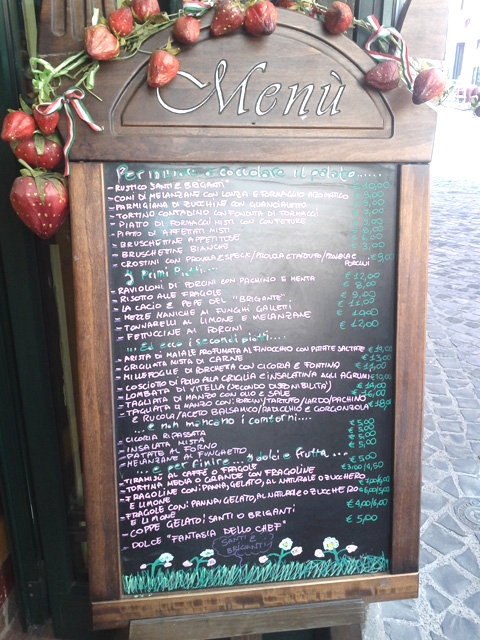 Menù
Per iniziare e stuzzicare il palato.....
- RUSTICO SANTI E BRIGANTI € 10,00
- CONI DI MELANZANE CON LONZA E FORMAGGIO AROMATICO
- PARMIGIANA DI ZUCCHINE CON GUANCIALETTO
- TORTINO CONTADINO CON FONDUTA DI FORMAGGI
- PIATO DI FORMAGGI MISTI CON CONFETURE
- PIATO DI AFFETATI MISTI
- BRUSCHETTINE APPETITOSE
- BRUSCHETTINE BIANCHE
- CROSTINI CON PROVOLA E SPECK/PROVOLA E TARTUFO/PROVOLA E PORCINI € 9,00
I Primi Piatti....
- RAVIOLONI DI PORCINI CON PACHINO E MENTA € 12,00
- RISOTTO ALLE FRAGOLE € 8,00
- LA CACIO E PEPE DEL "BRIGANTE" € 9,00
- MEZZE MANICHE AI FUNGHI GALLETTI € 11,00
- TONNARELLI AL LIMONE E MELANZANE € 10,00
- FETTUCINE AI PORCINI € 12,00
....Ed ecco i secondi piatti....
- ARISTA DI MAIALE PROFUMATA AL FINOCCHIO CON PATATE SALTATE
- GRIGLIATA MISTA DI CARNE € 13,00
- MILLEFOGLIE DI PORCHETTA CON CICORIA E FONTINA € 11,00
- COSCIOTTO DI POLLO ALLA GRIGLIA E INSALATINA AGLI AGRUMI € 10,00
- LOMBATA DI VITELLA (SECONDO DISPONIBILITA') € 14,00
- TAGLIATA DI MANZO CON OLIO E SALE € 16,00
- TAGLIATA DI MANZO CON: PORCINI/TARTUFO/LARDO/PACHINO
E RUCOLA/ACETO BALSAMICO/RADICCHIO E GORGONZOLA € 18,00
....e non mancano i contorni....
- CICORIA RIPASSATA € 5,00
- INSALATA MISTA € 5,00
- PATATE AL FORNO € 5,00
- MELANZANE AL FUNGHETTO € 5,00
....e per finire... i dolci e frutta....
- TIRAMISÙ AL CAFFÈ O FRAGOLE € 5,00
- TORTINA, MEDIA O GRANDE CON FRAGOLINE € 3,00/4,50
- FRAGOLINE CON: PANNA, GELATO, AL NATURALE O ZUCCHERO
E LIMONE
- FRAGOLE CON: PANNA, GELATO, AL NATURALE O ZUCCHERO
E LIMONE
- COPPE GELATO: SANTI O BRIGANTI € 4,00/6,00
- DOLCE "FANTASIA DELLO CHEF" € 5,00
SANTI E
BRIGANTI